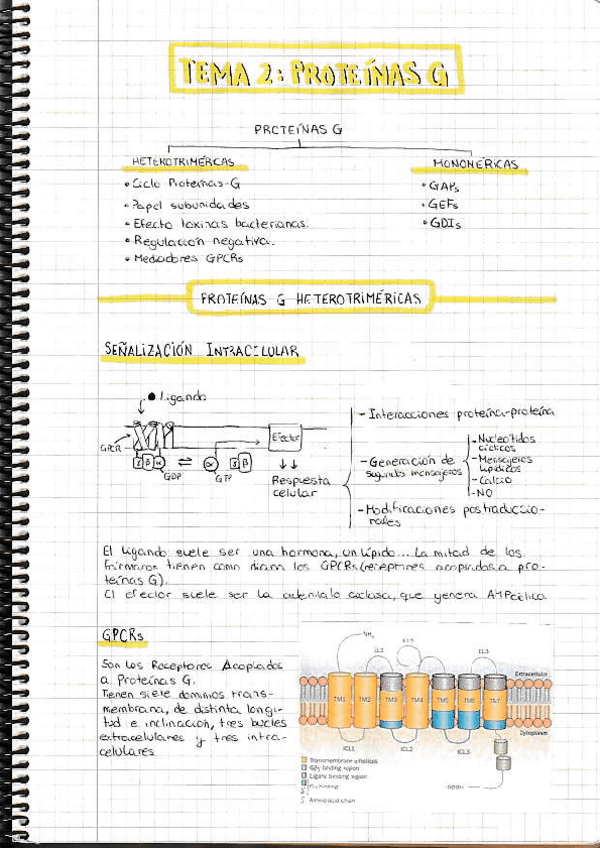 TEMA 2: PROTEÍNAS G
PROTEÍNAS G
HETEROTRIMÉRICAS
MONOMÉRICAS
• Ciclo Proteínas-G
• Papel subunidades
• Efecto toxinas bacterianas.
• Regulación negativa.
• Mediadores GPCRs
• GAPs
• GEFs
• GDIs
PROTEÍNAS G HETEROTRIMÉRICAS
SEÑALIZACIÓN INTRACELULAR
Ligando
GPCR
γ β α
GDP
α
GTP
γ β
Efector
Respuesta
celular
- Interacciones proteína-proteína
- Generación de
segundos mensajeros
- Nucleótidos
cíclicos
- Mensajeros
lipídicos
- Calcio
- NO
- Modificaciones postraduccio-
nales
El ligando suele ser una hormona, un lípido... La mitad de los
fármacos tienen como diana los GPCRs (receptores acoplados a pro-
teínas G).
El efector suele ser la adenilato ciclasa, que genera AMPcíclico.
GPCRs
Son los Receptores Acoplados
a Proteínas G.
Tienen siete dominios trans-
membrana, de distinta longi-
tud e inclinación, tres bucles
extracelulares y tres intra-
celulares
NH₂
EL3
Extracellular
TM1 TM2 TM3 TM4 TM5 TM6 TM7
Cytoplasm
ICL1
ICL2
ICL3
COOH
Transmembrane α-helices
binding region
Ligand binding region
Amino acid chain